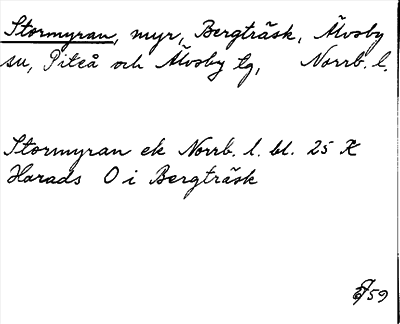 Stormyran, myr, Bergträsk, Älvsby
sn, Piteå och Älvsby tg, Norrb. l.
Stormyran ek Norrb. l. bl. 25 K
Harads O i Bergträsk
59